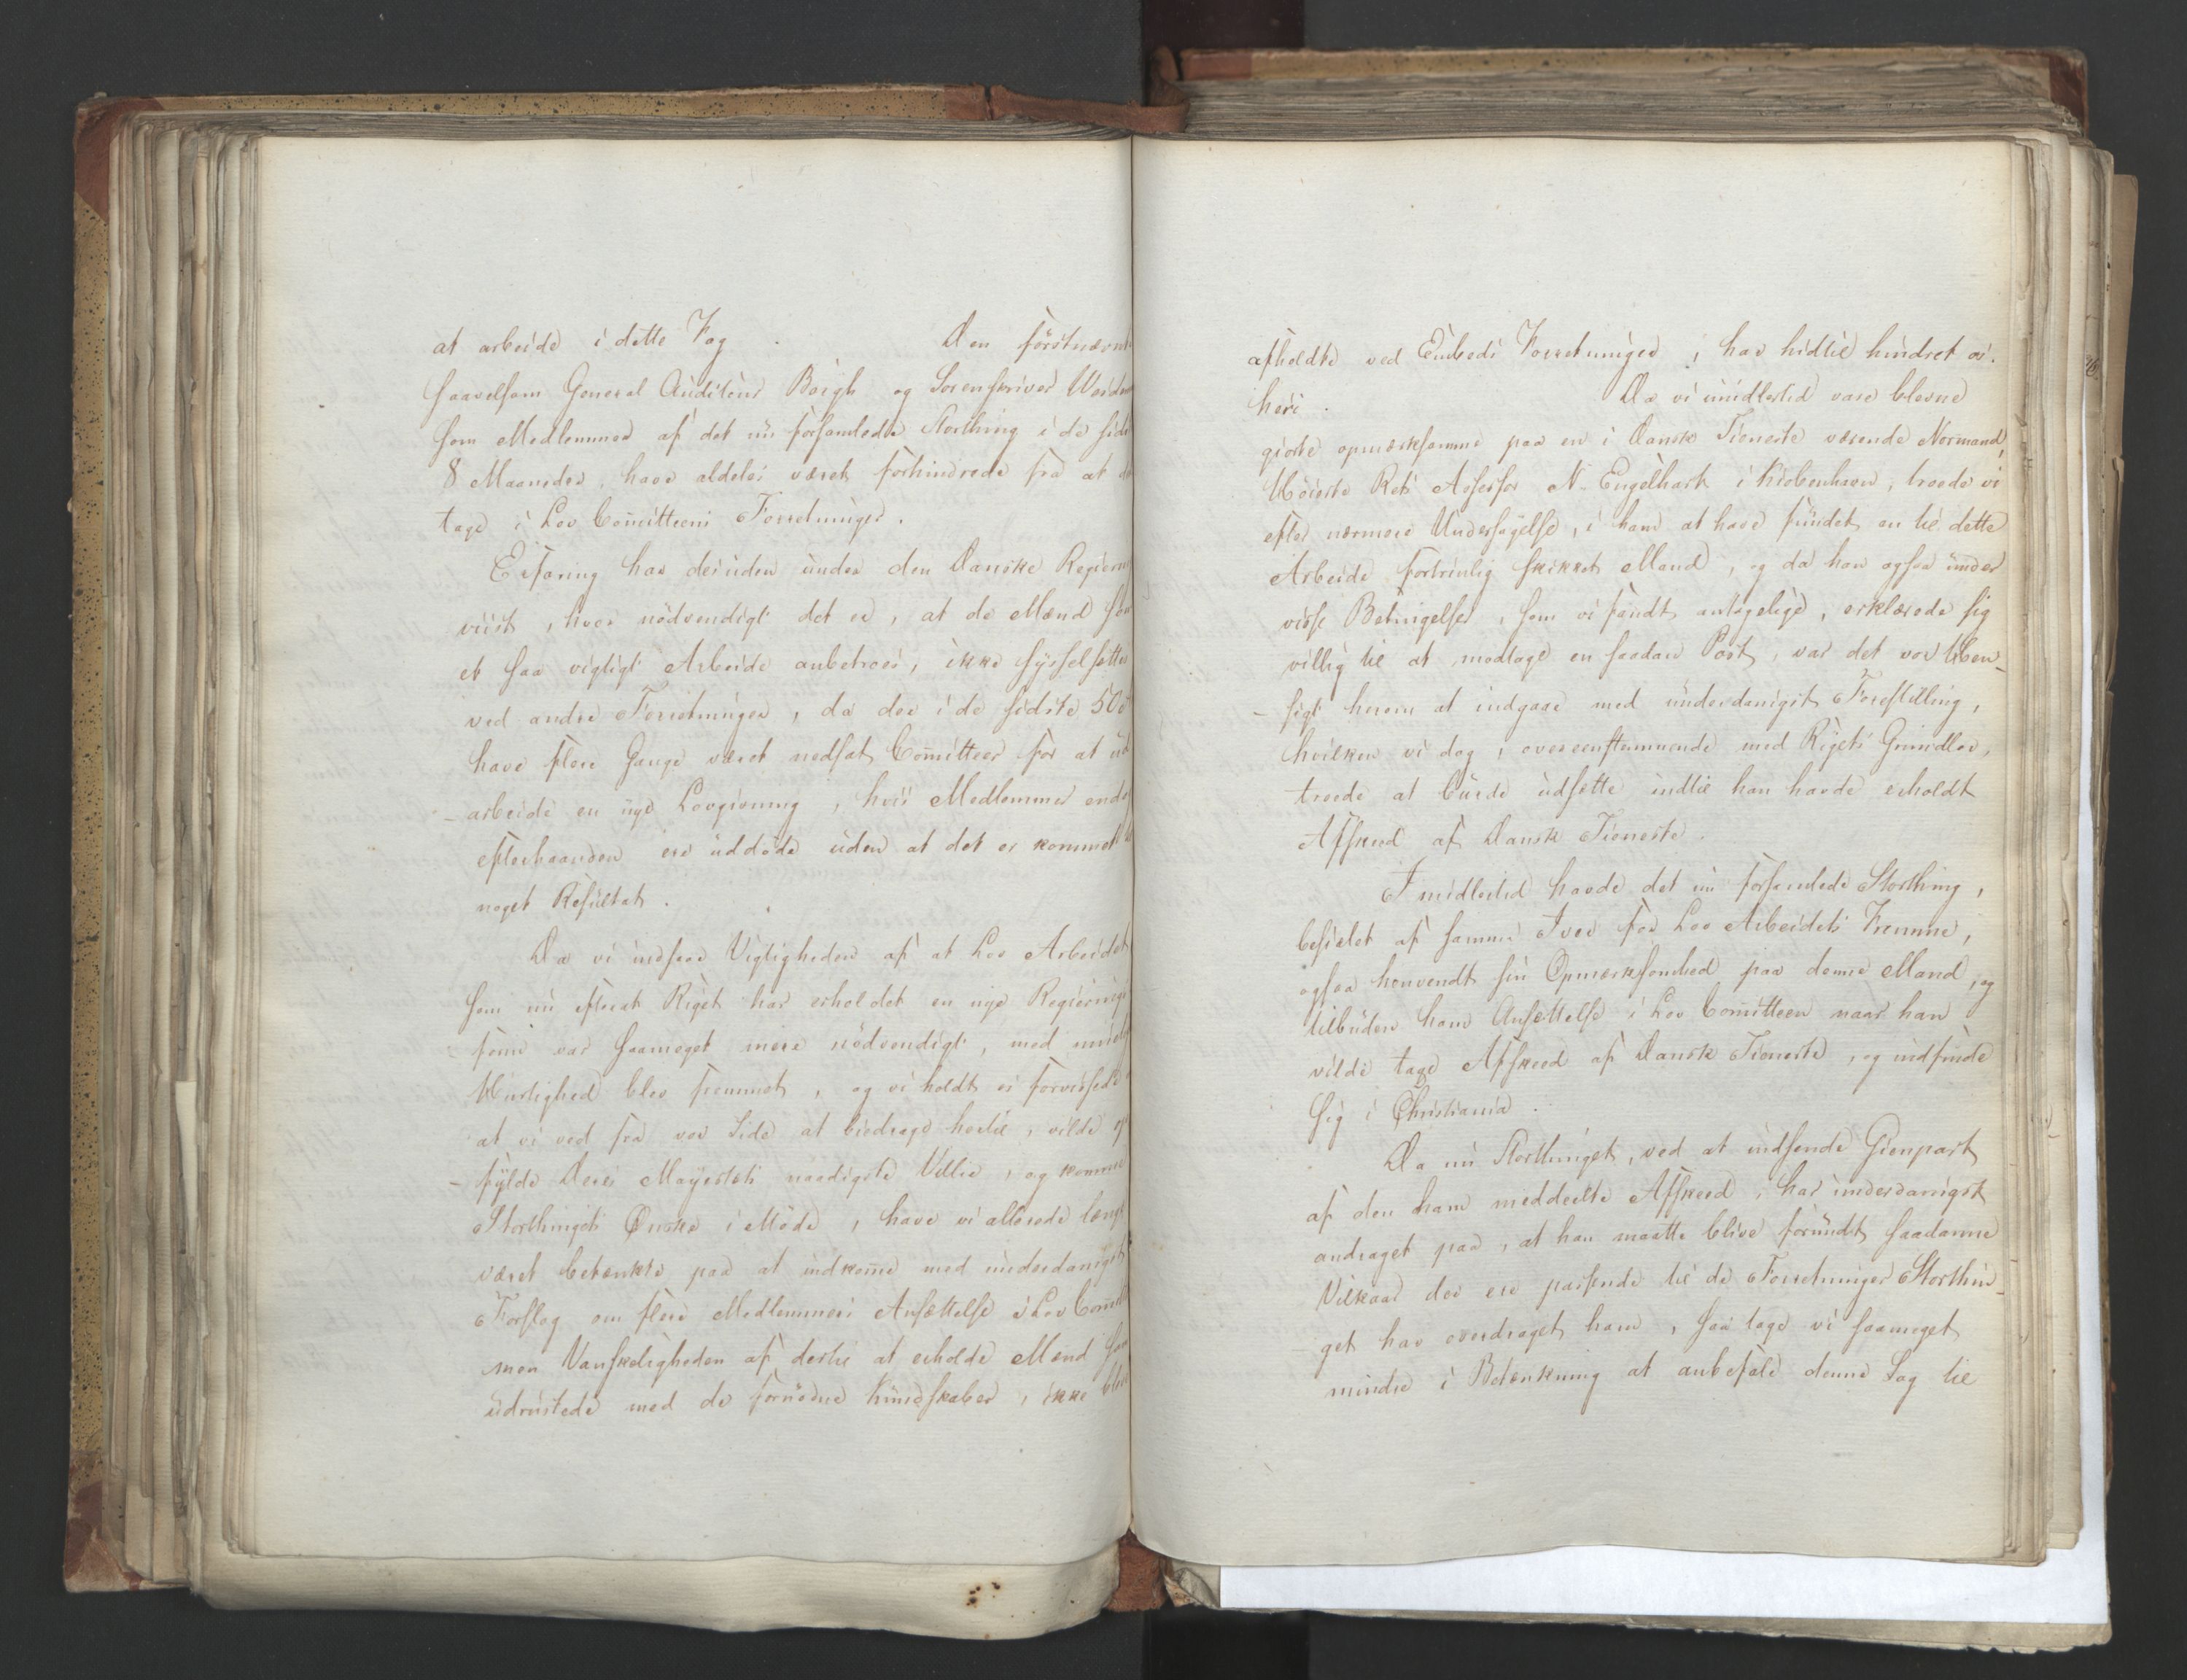 at arbeide i dette Fag . Den förstnævnt
saavelsom General Auditeur Bergh og Sorenskriver Weide
som Medlemmer af det nu forsamlede Storthing i de sid
8 Maaneder, have aldeles været forhindrede fra at de
tage i Lov Comitteens Forretninger.
Erfaring har desuden under den Danske Regiering
viist, hvor nödvendigt det er, at de Mænd som
et saa vigtigt Arbeide anbetroes, ikke sysselsættes
ved andre Forretninger, da der i de sidste 50
have flere Gange været nedsat Comitteer for at ud
-arbeide en nye Lovgivning, hvis Medlemmer ende
efterhaanden ere uddöde uden at det er kommet
noget Resultat.
Da vi indsaae Vigtigheden af at Lov Arbeidet
som nu efterat Riget har erholdet en nye Regierings
form var saameget mere nödvendigt, med muel
Hurtighed blev fremmet, og vi holdt os forvissede
at vi ved fra vor Side at bidrage hertil, vilde op
-fylde Deres Majestets naadigste Villie, og komme
Storthingets Ønske i Möde, have vi allerede længe
været betænkte paa at indkomme med underdanigst
Forslag om flere Medlemmers Ansættelse i Lov Comitt
men Vanskeligheden af dertil at erholde Mænd som
udrustede med de fornödne Kundskaber, ikke bleve
afholdte ved Embeds Forretninger, har hidtil hindret os
heri. Da vi imidlertid vare blevne
giorte opmærksomme paa en i Dansk Tieneste værende Normand,
Höieste Rets Assessor N. Engelhart i Kiöbenhavn, troede vi
efter nærmere Undersögelse, i ham at have fundet en til dette
Arbeide fortrinlig skikket Mand, og da han ogsaa under
visse Betingelser, som vi fandt antagelige, erklærede sig
villig til at modtage en saadan Post, var det vor Hen-
-sigt herom at indgaae med underdanigst Forestilling,
hvilken vi dog, overeenstemmende med Rigets Grundlov,
troede at burde udsætte indtil han havde erholdt
Afskeed af Dansk Tieneste.
Imidlertid havde det nu forsamlede Storthing,
besielet af samme Iver for Lov Arbeidets Fremme,
ogsaa henvendt sin Opmærksomhed paa denne Mand, og
tilbuden ham Ansættelse i Lov Comitteen naar han
vilde tage Afskeed af Dansk Tieneste, og indfinde
sig i Christiania.
Da nu Storthinget, ved at indsende Gienpart
af den ham meddeelte Afskeed, har underdanigst
andraget paa, at han maatte blive forundt saadanne
Vilkaar der ere passende til de Forretninger Storthin-
get har overdraget ham, saa tage vi saameget
mindre i Betænkning at anbefale denne Sag til